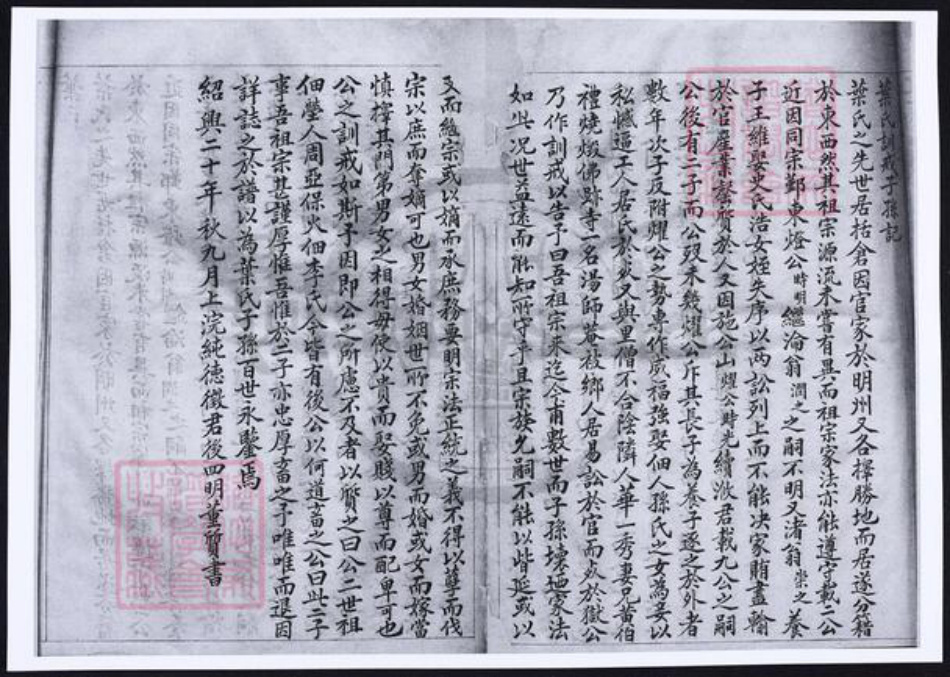 葉氏訓戒子孫記
葉氏之先世居括倉因官家於明州又各擇勝地而居遂分籍
於東西然其祖宗源流未嘗有異而祖宗家法亦能遵守載二公
近因同宗鄞東燈公時明繼淪翁潤之之嗣不明又渚翁崇之養
子王維娶史氏浩女姪失序以两訟列上而不能决家賄盡輸
於官產業罄質於人又因施公山耀公時光續澈君載九公之嗣
公後有二子而公殁未幾耀公斥其長子為養子逐之於外者
數年次子反附耀公之勢專作威福強娶佃人孫氏之女為妾以
私憾逼工人居氏於又與里僧不合陰隣人華一秀妻兄黄伯
禮燒燬佛跡寺一名湯師菴被鄉人居易訟於官而於獄公
乃作訓戒以告予曰吾祖宗来迄今甫數世而子孫壊家法
如此况世益遠而能知所守乎且宗族允嗣不能以皆延或以
支而繼宗或以嫡而承庶務要明宗法正統之義不得以孽而伐
宗以庶而奪嫡可也男女婚姻世所不免或男而婚或女而嫁當
慎擇其門第男女之相得毋使以貴而娶賤以尊而配卑可也
公之訓戒如斯予因即公之所慮不及者以質之曰公二世祖
佃塋人周亞保火佃李氏今皆有後公以何道畜之公曰此二子
事吾祖宗甚謹厚惟吾惟於二子亦忠厚畜之予唯唯而退因
詳誌之於譜以為葉氏子孫百世永鑒焉
紹興二十年秋九月上浣純德徵君後四明董質書